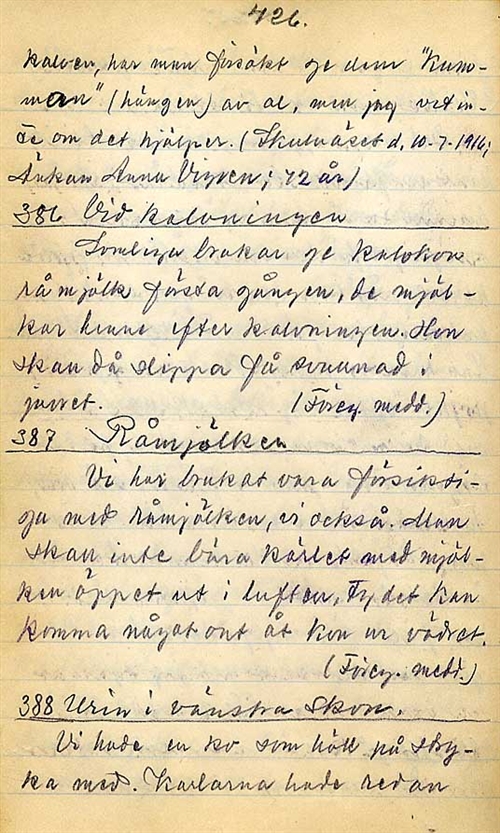 426.
kalven, har man försökt ge dem "Kumm-
man" (hängen) av al, men jag vet in-
te om det hjälper. (Skutnäset d. 10-7-1916;
Änkan Anna Vigren; 72 år)
386 Vid kalvningen
Somliga brukar ge kalvkon
råmjölk första gången, de mjöl-
kar henne efter kalvningen. Hon
skall då slippa få svunnad i
juvret. (Föreg. medd.)
387 Råmjölken
Vi har brukat vara försikti-
ga med råmjölken, vi också. Man
skall inte bära kärlet med mjöl-
ken öppet ut i luften, ty det kan
komma något ont åt kon ur vädret.
(Föreg. medd.)
388 Urin i vänstra skon.
Vi hade en ko som höll på stry-
ka med. Karlarna hade redan